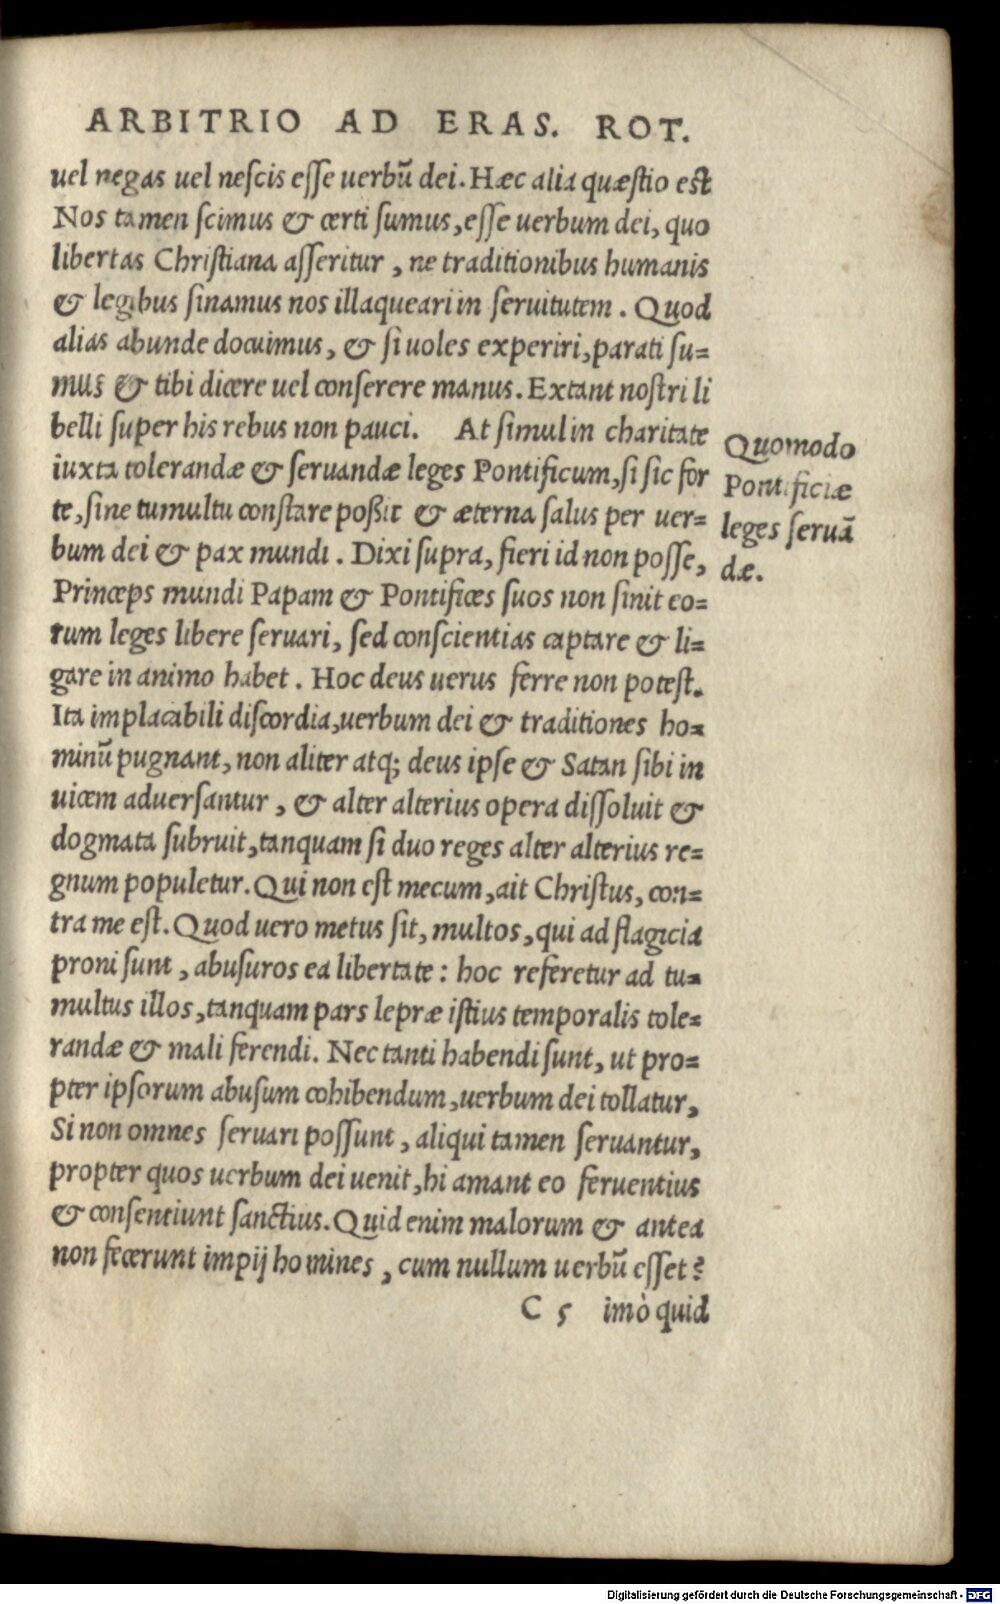 ARBITRIO AD ERAS. ROT.
uel negas uel nescis esse uerbũ dei. Hæc alia quæstio est
Nos tamen scimus & certi sumus, esse uerbum dei, quo
libertas Christiana asseritur, ne traditionibus humanis
& legibus sinamus nos illaqueari in seruitutem. Quod
alias abunde docuimus, & si uoles experiri, parati su=
mus & tibi dicere uel conserere manus. Extant nostri li
belli super his rebus non pauci. At simul in charitate
iuxta tolerandæ & seruandæ leges Pontificum, si sic for
te, sine tumultu constare poßit & æterna salus per uer=
bum dei & pax mundi. Dixi supra, fieri id non posse,
Princeps mundi Papam & Pontifices suos non sinit eo=
rum leges libere seruari, sed conscientias captare & li=
gare in animo habet. Hoc deus uerus ferre non potest.
Ita implacabili discordia, uerbum dei & traditiones ho=
minũ pugnant, non aliter atq; deus ipse & Satan sibi in
uicem aduersantur, & alter alterius opera dissoluit &
dogmata subruit, tanquam si duo reges alter alterius re=
gnum populetur. Qui non est mecum, ait Christus, con=
tra me est. Quod uero metus sit, multos, qui ad flagicia
proni sunt, abusuros ea libertate: hoc referetur ad tu=
multus illos, tanquam pars lepræ istius temporalis tole=
randæ & mali ferendi. Nec tanti habendi sunt, ut pro=
pter ipsorum abusum cohibendum, uerbum dei tollatur,
Si non omnes seruari possunt, aliqui tamen seruantur,
propter quos uerbum dei uenit, hi amant eo feruentius
& consentiunt sanctius. Quid enim malorum & antea
non fecerunt impij homines, cum nullum uerbũ esset?
C 5 imò quid
Quomodo
Pontificiæ
leges seruã
dæ.
Digitalisierung gefördert durch die Deutsche Forschungsgemeinschaft - DFG